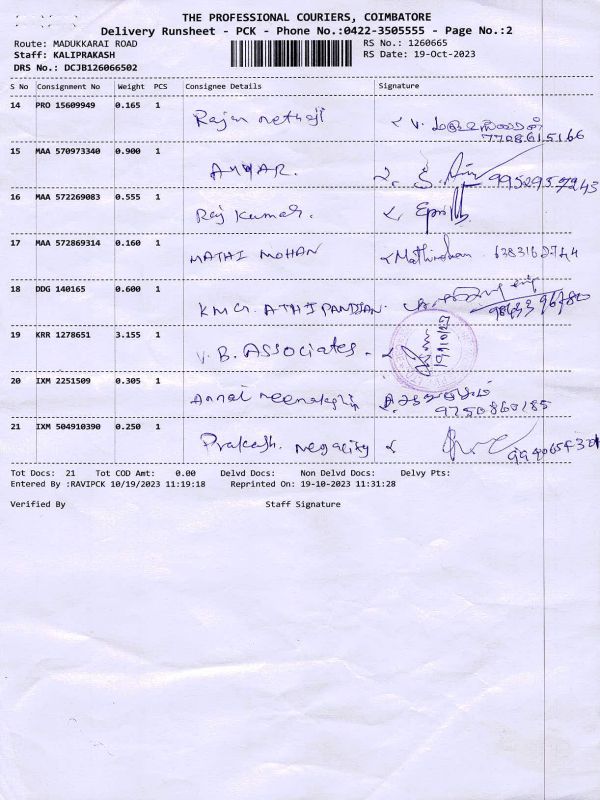 THE PROFESSIONAL COURIERS, COIMBATORE
Delivery Runsheet - PCK - Phone No.:0422-3505555 - Page No.:2
Route: MADUKKARAI ROAD RS No.: 1260665
Staff: KALIPRAKASH RS Date: 19-Oct-2023
DRS No.: DCJB126066502
S No Consignment No Weight PCS Consignee Details Signature
14 PRO 15609949 0.165 1
Rajan nethaji V.
7708615166
15 MAA 570973340 0.900 1
ANWAR. 9952957243
16 MAA 572269083 0.555 1
Raj Kumar.
17 MAA 572869314 0.160 1
MATHI MOHAN Mathimohan 6383162744
18 DDG 140165 0.600 1
K.M.G. ATHIPANDIAN.
19 KRR 1278651 3.155 1
V. B. Associates. 19/10/23
20 IXM 2251509 0.305 1
Annai
9750860185
21 IXM 504910390 0.250 1
Prakash. megacity
Tot Docs: 21 Tot COD Amt: 0.00 Delvd Docs: Non Delvd Docs: Delvy Pts:
Entered By :RAVIPCK 10/19/2023 11:19:18 Reprinted On: 19-10-2023 11:31:28
Verified By Staff Signature